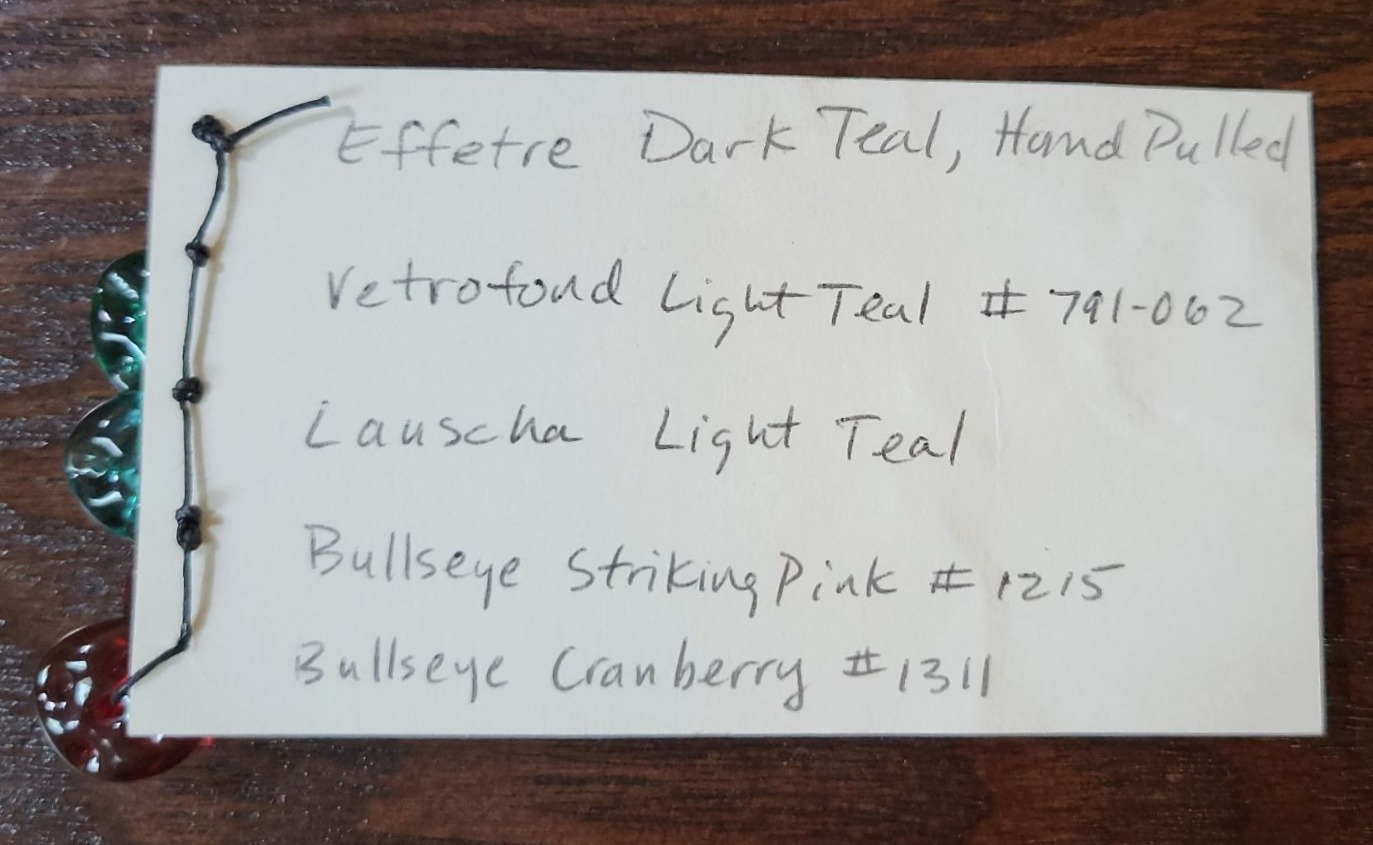 Effetre Dark Teal, Hand Pulled
Vetrofond Light Teal # 791-062
Lauscha Light Teal
Bullseye Striking Pink # 1215
Bullseye Cranberry #1311